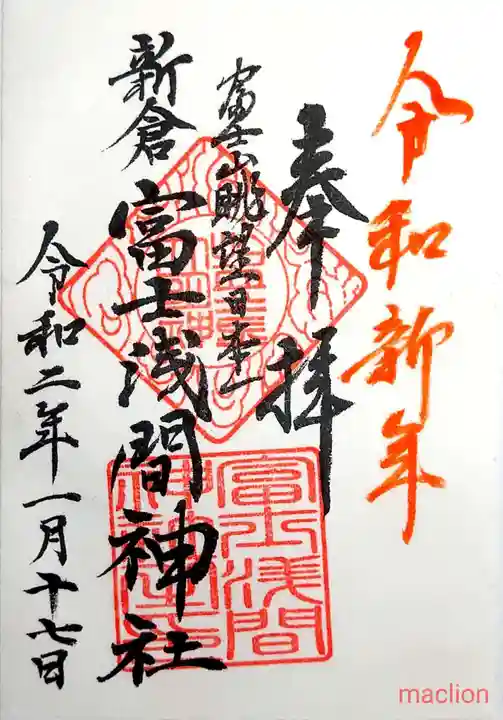 令和新年
奉拝
富士山眺望日本一
新倉富士浅間神社
令和二年一月十七日
富士浅間
神社
maclion